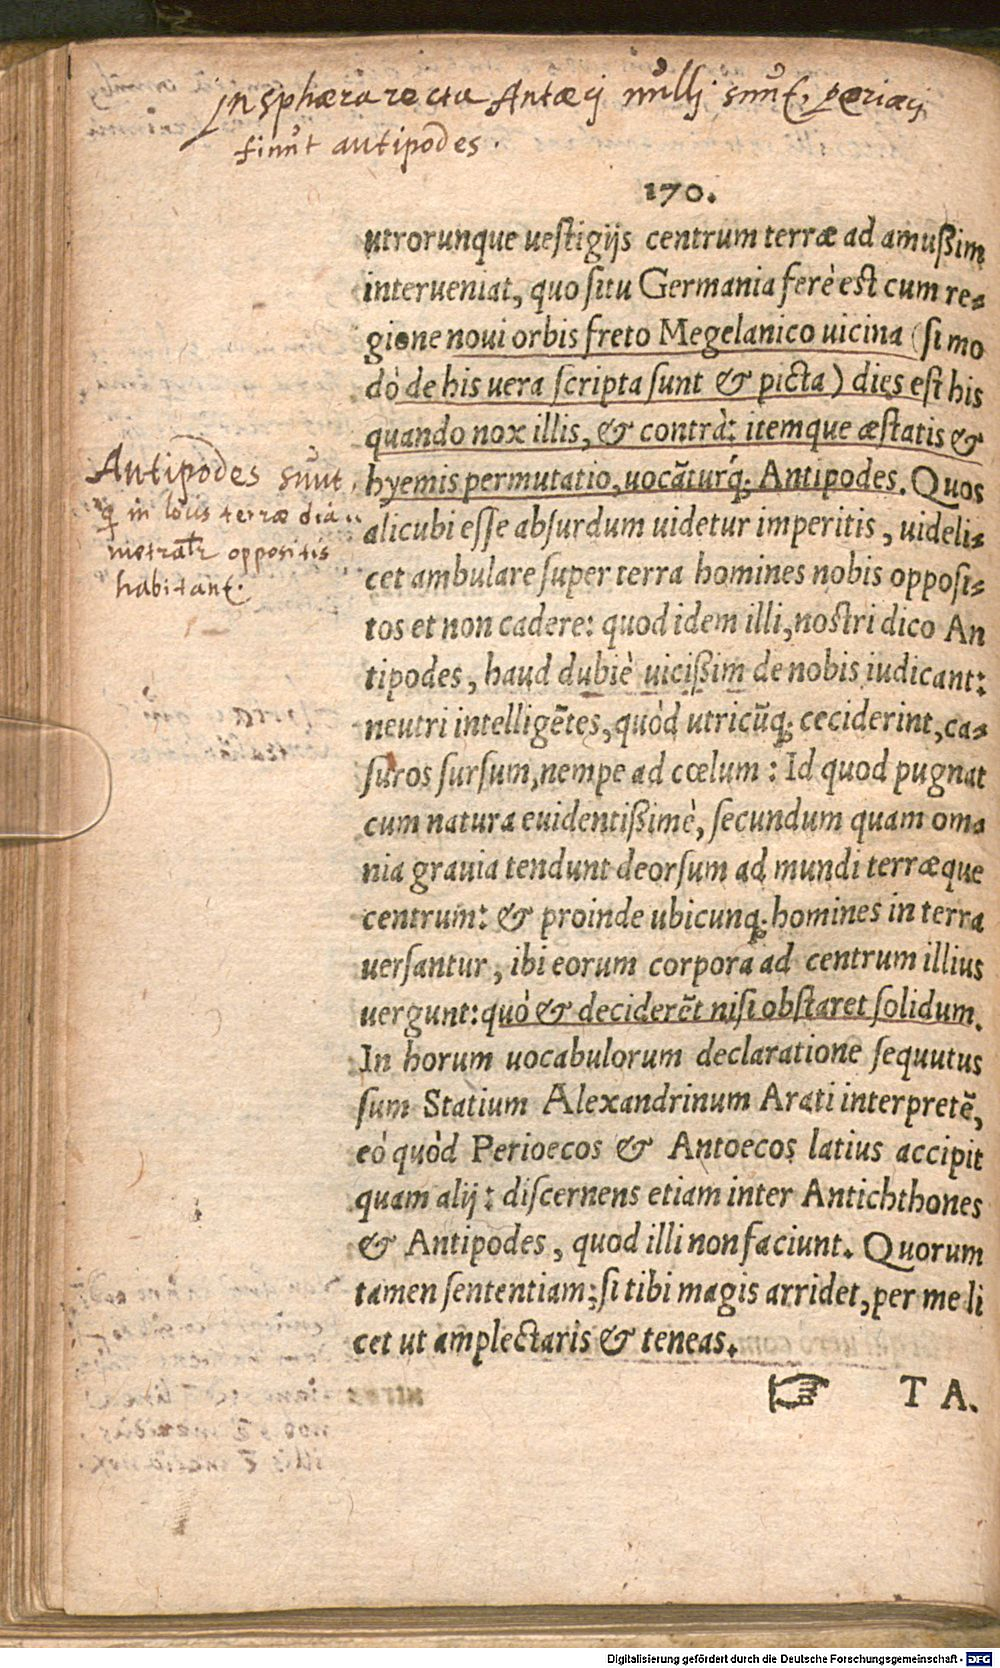 In sphæra recta Antæcj nullj sunt, periæcj
fiunt antipodes.
170.
utrorunque uestigijs centrum terræ ad amußim
interueniat, quo situ Germania ferè est cum re-
gione noui orbis freto Megelanico uicina (si mo
dò de his uera scripta sunt & picta) dies est his
quando nox illis, & contrà: itemque æstatis &
hyemis permutatio, uocãturq́; Antipodes. Quos
alicubi esse absurdum uidetur imperitis, uideli-
cet ambulare super terra homines nobis opposi-
tos et non cadere: quod idem illi, nostri dico An
tipodes, haud dubiè uicißim de nobis iudicant:
neutri intelligẽtes, quòd utricũq; ceciderint, ca-
suros sursum, nempe ad cœlum: Id quod pugnat
cum natura euidentißimè, secundum quam om-
nia grauia tendunt deorsum ad mundi terræque
centrum: & proinde ubicunq; homines in terra
uersantur, ibi eorum corpora ad centrum illius
uergunt: quò & deciderẽt nisi obstaret solidum.
In horum uocabulorum declaratione sequutus
sum Statium Alexandrinum Arati interpretẽ,
eò quòd Perioecos & Antoecos latius accipit
quam alij: discernens etiam inter Antichthones
& Antipodes, quod illi non faciunt. Quorum
tamen sententiam, si tibi magis arridet, per me li
cet ut amplectaris & teneas.
☞ T A.
Antipodes sunt
q̃ in locis terræ dia-
metralr oppositis
habitant.
Digitalisierung gefördert durch die Deutsche Forschungsgemeinschaft - DFG